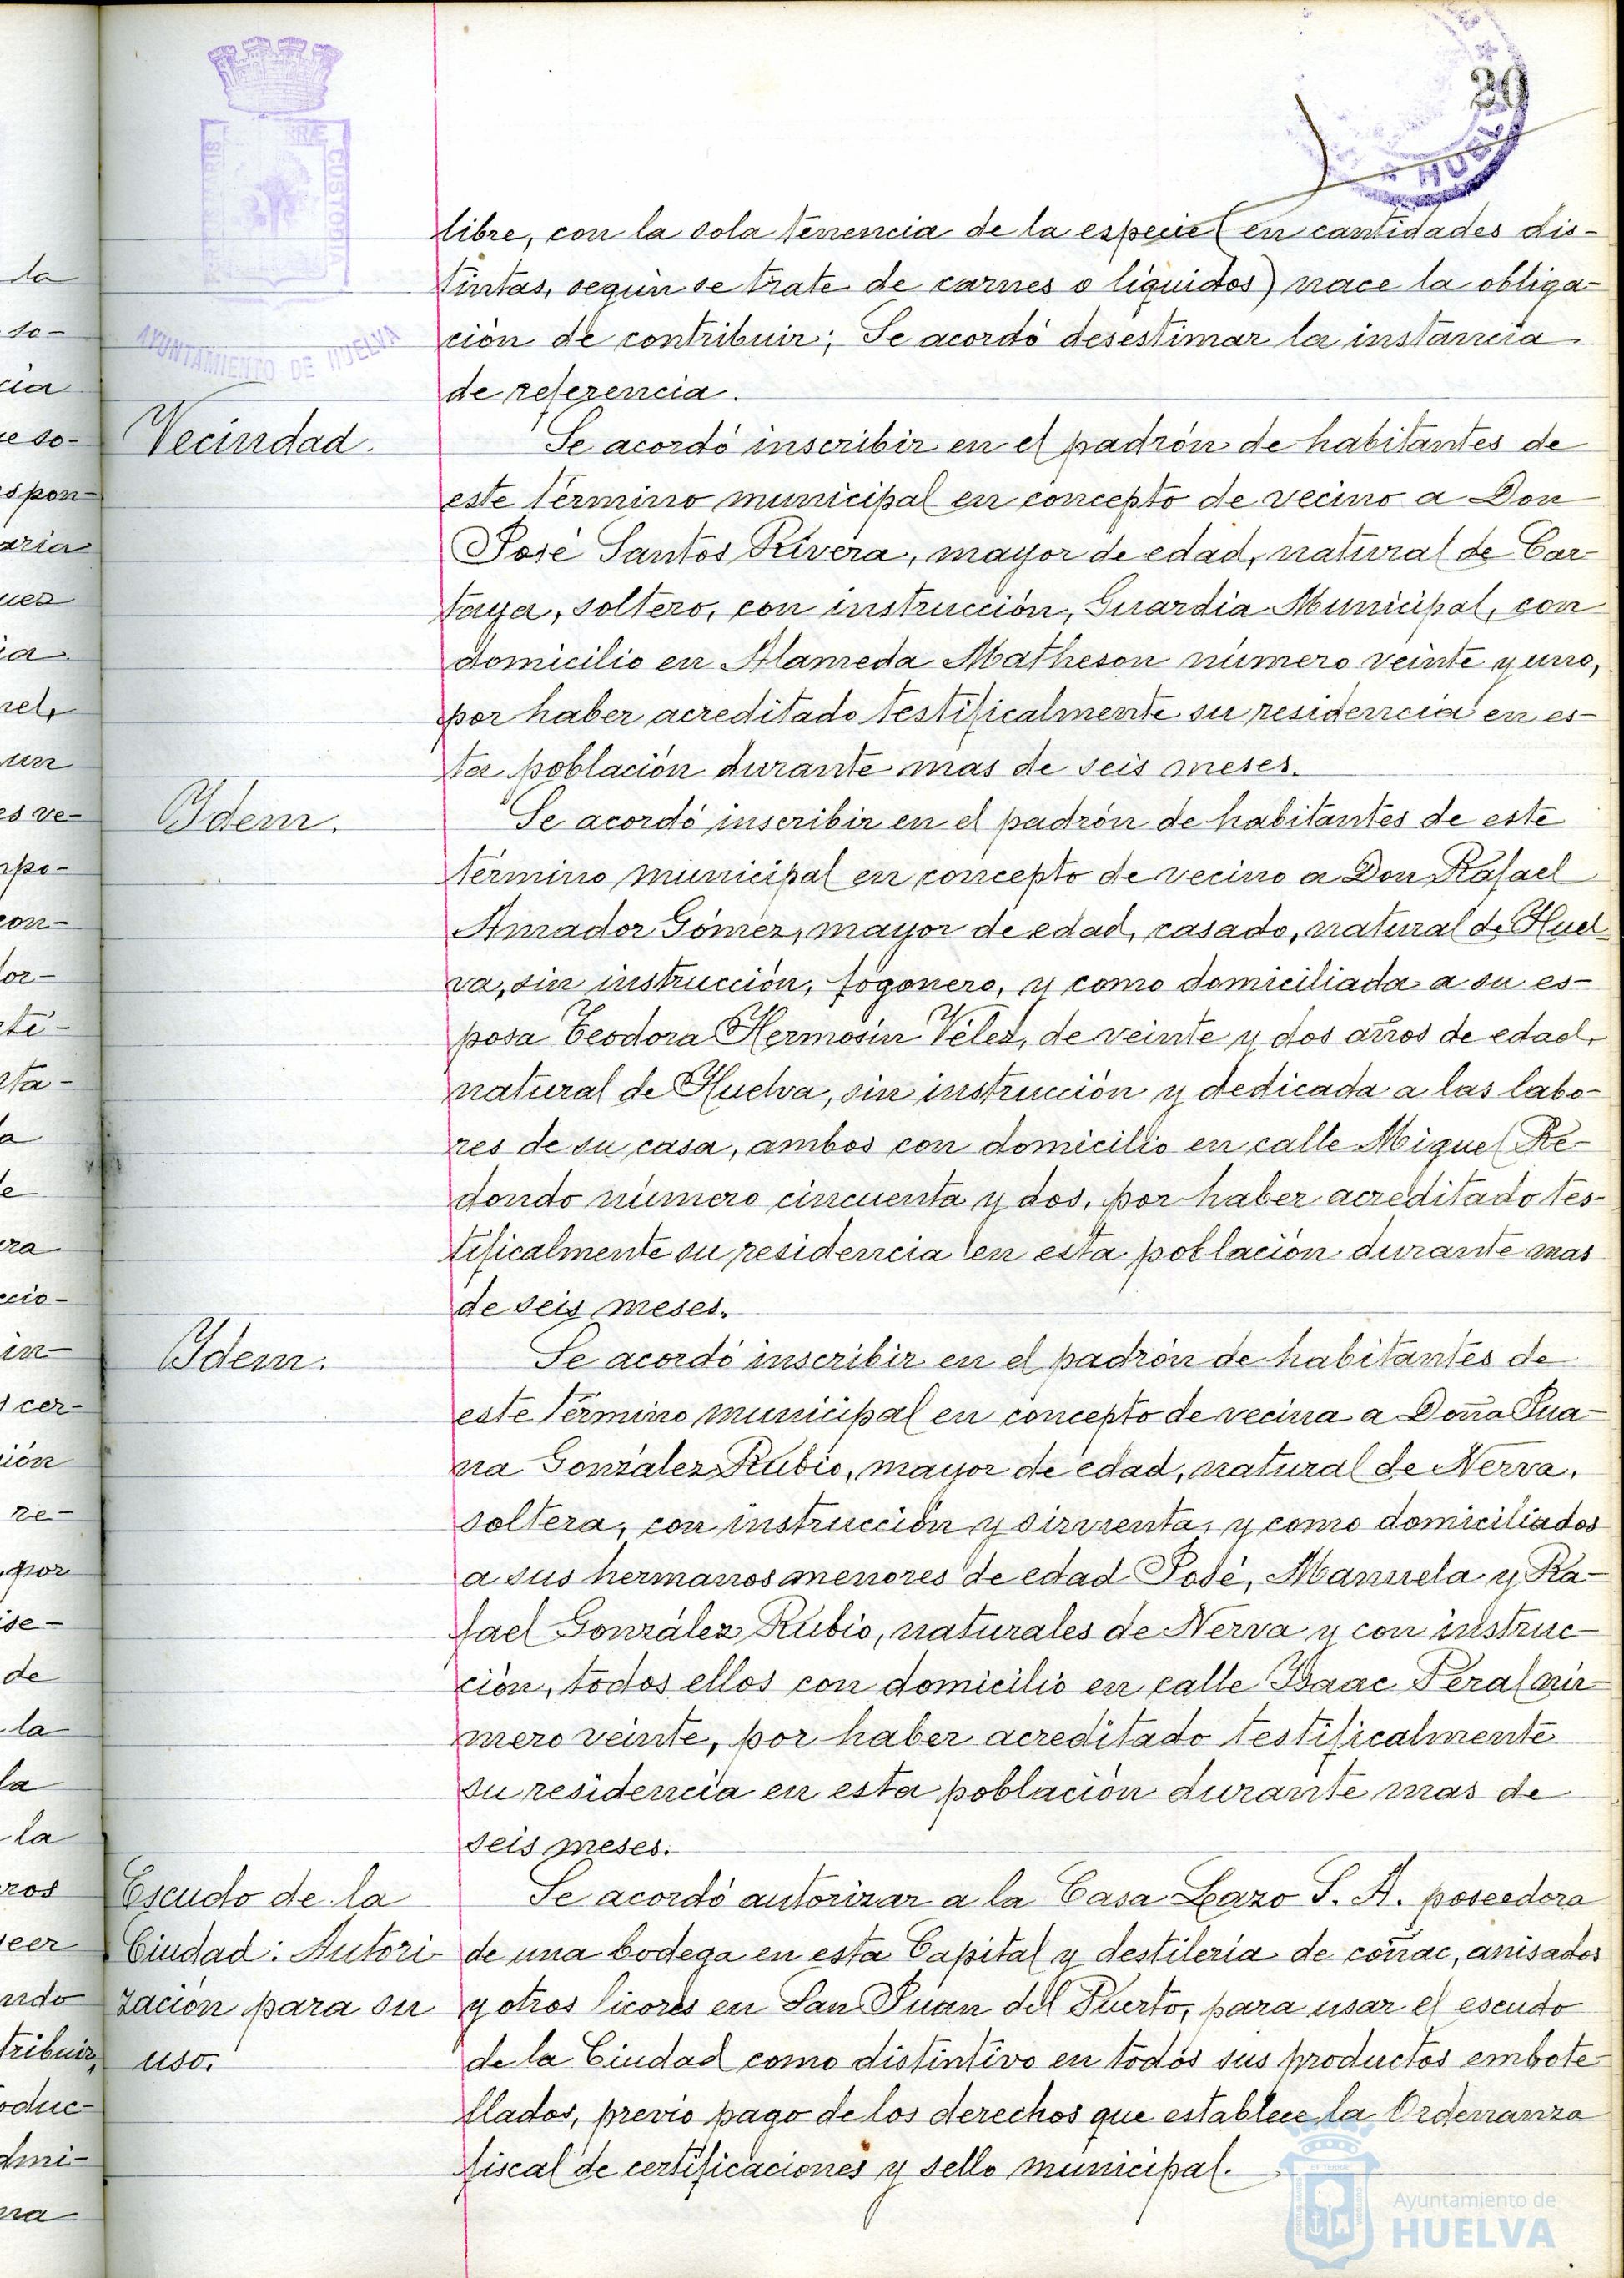 20
HUELVA
AYUNTAMIENTO DE HUELVA
libre, con la sola tenencia de la especie (en cantidades dis-
tintas, según se trate de carnes o líquidos) nace la obliga-
ción de contribuir; Se acordó desestimar la instancia
de referencia.
Vecindad.
Se acordó inscribir en el padrón de habitantes de
este término municipal en concepto de vecino a Don
José Santos Rivera, mayor de edad, natural de Car-
taya, soltero, con instrucción, Guardia Municipal, con
domicilio en Alameda Matheson número veinte y uno,
por haber acreditado testificalmente su residencia en es-
ta población durante mas de seis meses.
Idem.
Se acordó inscribir en el padrón de habitantes de este
término municipal en concepto de vecino a Don Rafael
Amador Gómez, mayor de edad, casado, natural de Huel-
va, sin instrucción, fogonero, y como domiciliada a su es-
posa Teodora Hermosin Vélez, de veinte y dos años de edad,
natural de Huelva, sin instrucción y dedicada a las labo-
res de su casa, ambos con domicilio en calle Miguel Re-
dondo número cincuenta y dos, por haber acreditado tes-
tificalmente su residencia en esta población durante mas
de seis meses.
Idem.
Se acordó inscribir en el padrón de habitantes de
este término municipal en concepto de vecina a Doña Jua-
na González Rubio, mayor de edad, natural de Nerva,
soltera, con instrucción y sirvienta, y como domiciliados
a sus hermanos menores de edad José, Manuela y Ra-
fael González Rubio, naturales de Nerva y con instruc-
ción, todos ellos con domicilio en calle Isaac Peral nú-
mero veinte, por haber acreditado testificalmente
su residencia en esta población durante mas de
seis meses.
Escudo de la
Ciudad: Autori-
zación para su
uso.
Se acordó autorizar a la Casa Lazo S. A. poseedora
de una bodega en esta Capital y destilería de coñac, anisados
y otros licores en San Juan del Puerto, para usar el escudo
de la Ciudad como distintivo en todos sus productos embote-
llados, previo pago de los derechos que establece la Ordenanza
fiscal de certificaciones y sello municipal.
Ayuntamiento de
HUELVA